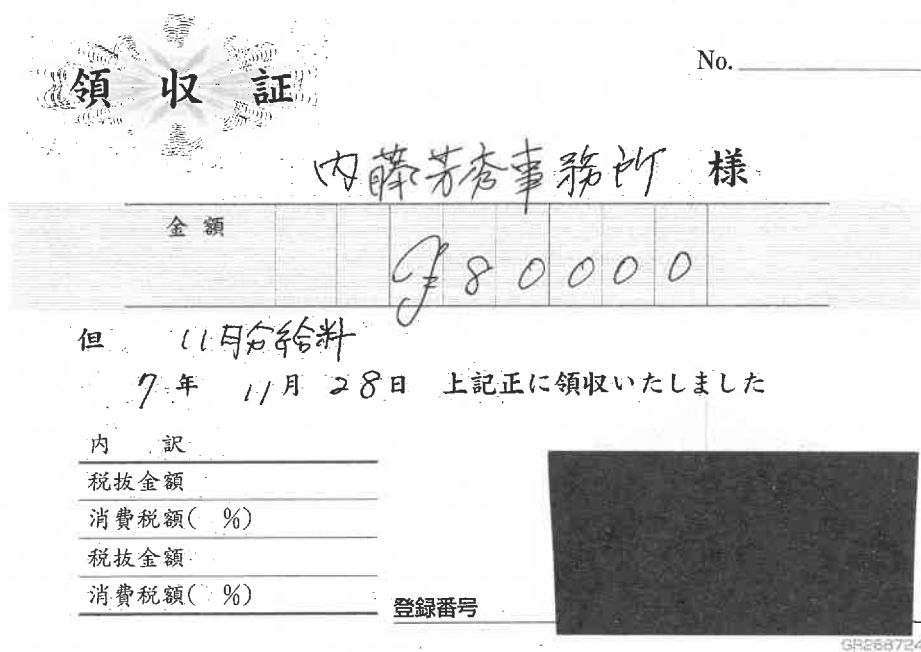 領収証
No.
内藤芳秀事務所 様
金額
¥80000
但 11月分給料
7年 11月 28日 上記正に領収いたしました
内 訳
税抜金額
消費税額( %)
税抜金額
消費税額( %)
登録番号
GR268724